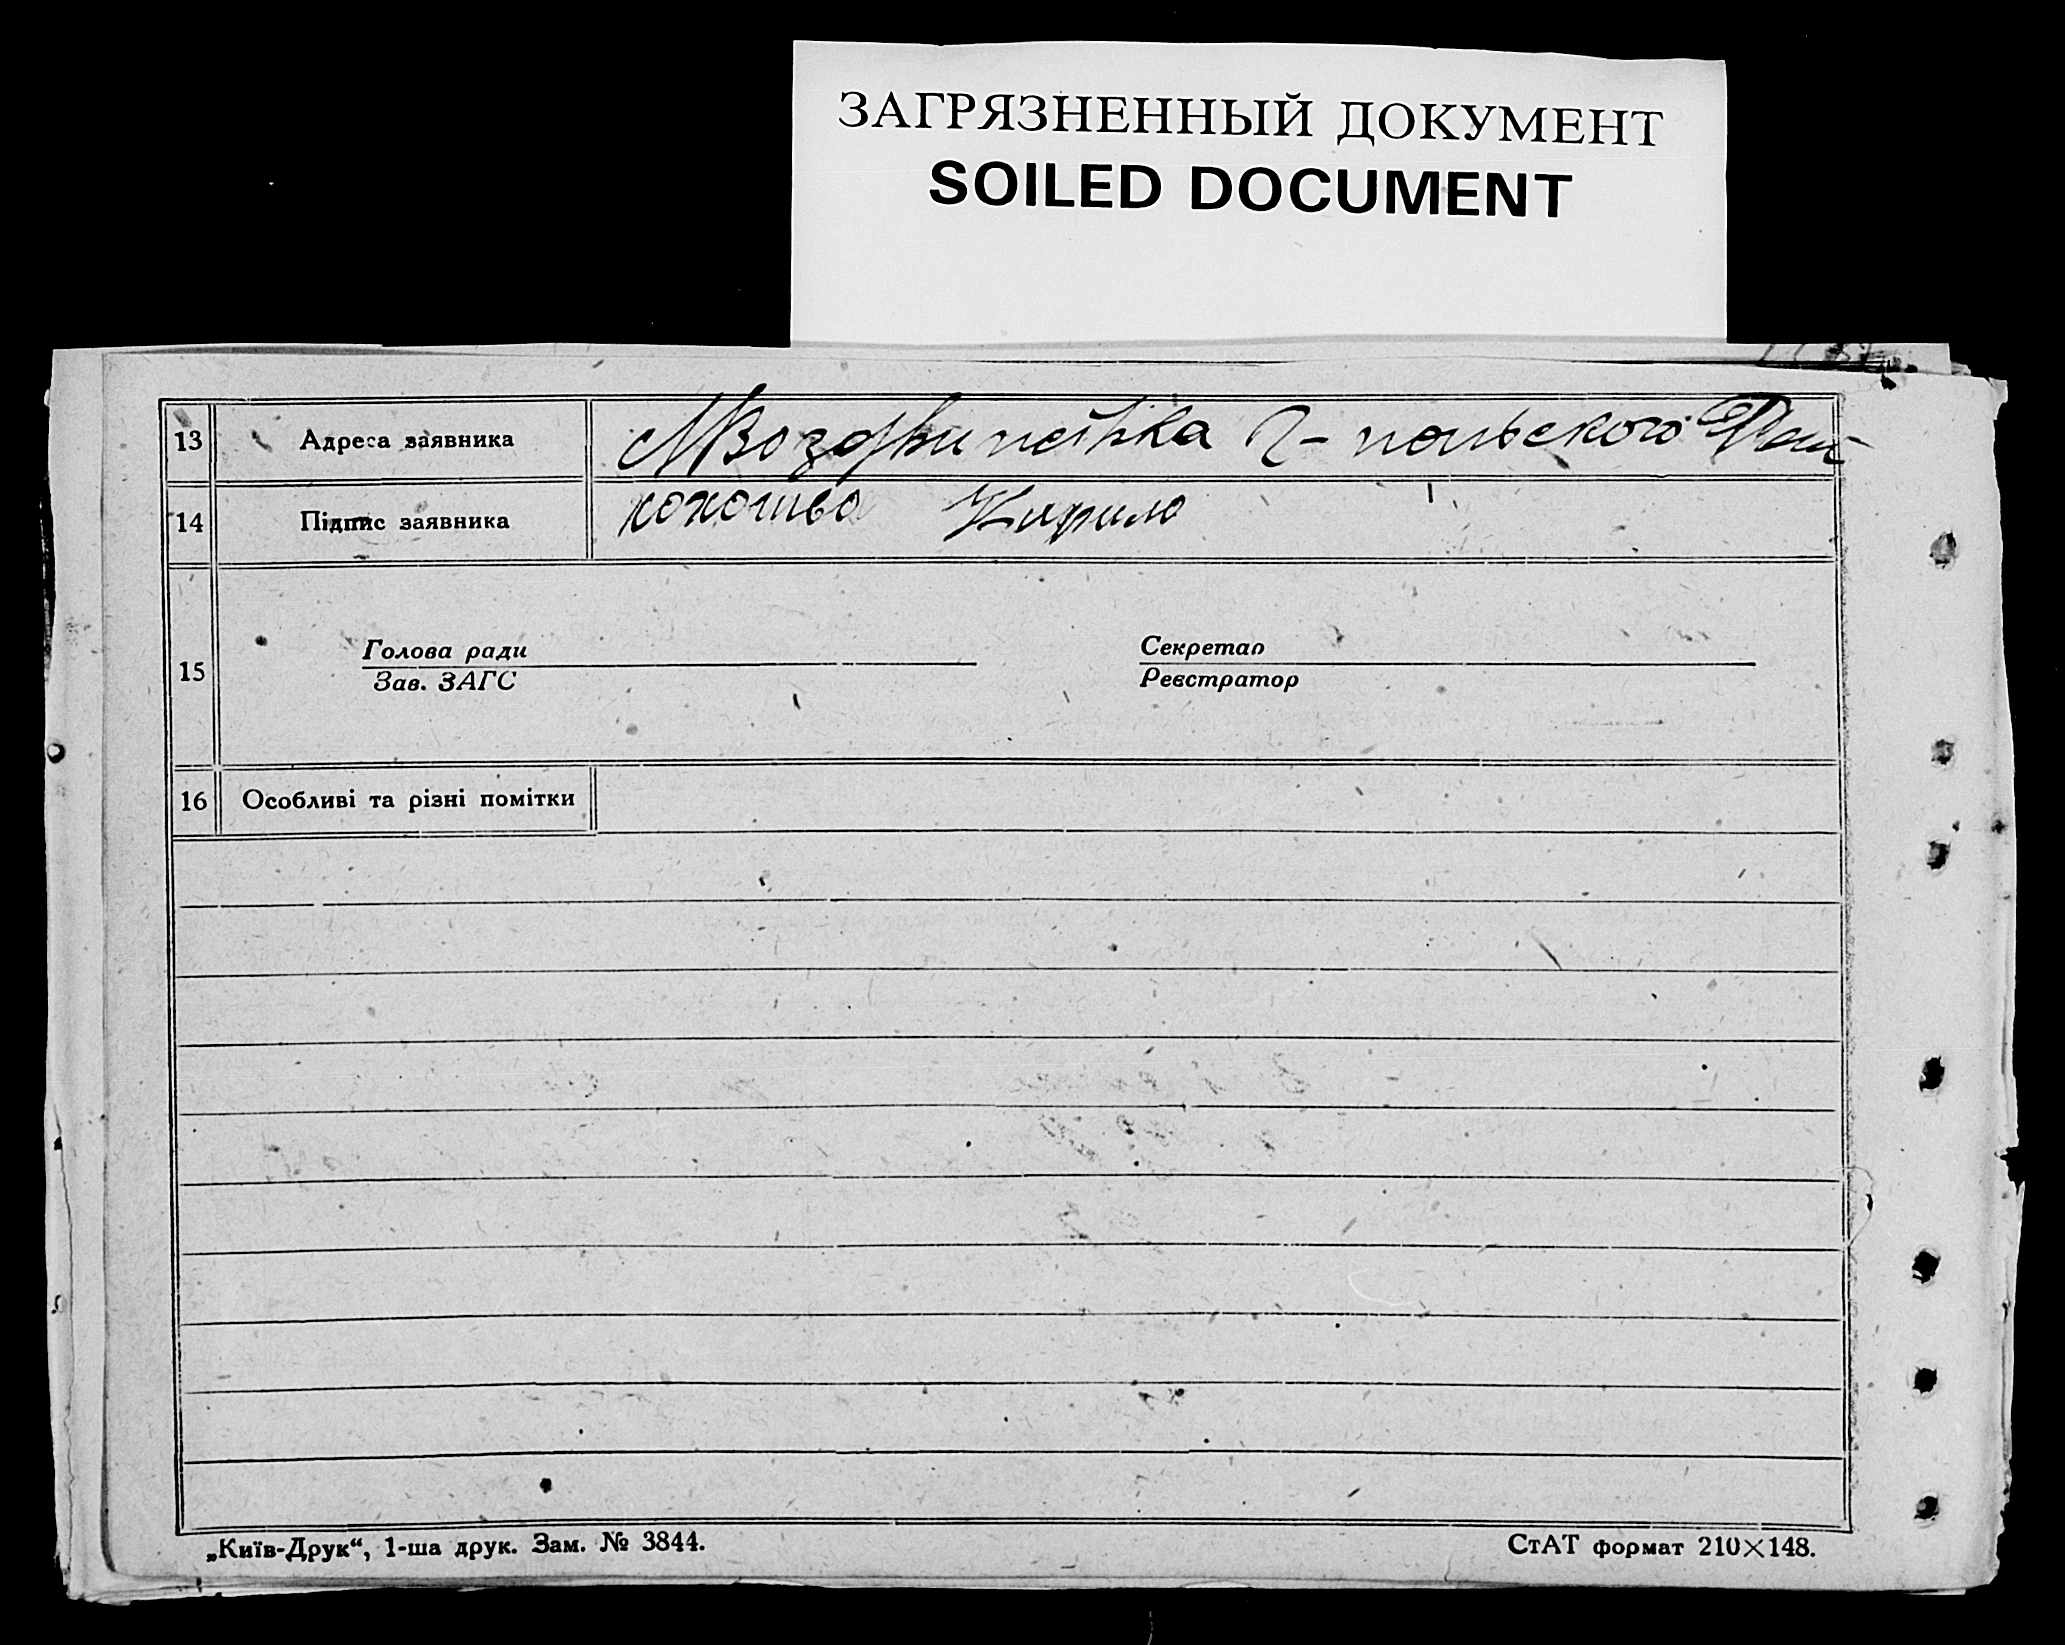 ЗАГРЯЗНЕННЫЙ ДОКУМЕНТ
SOILED DOCUMENT
13 Адреса заявника польского
14 Підпис заявника Кирило
15
Голова ради
Зав. ЗАГС
Секретар
Реєстратор
16 Особливі та різні помітки
„Київ-Друк“, 1-ша друк. Зам. № 3844.
СтАТ формат 210×148.